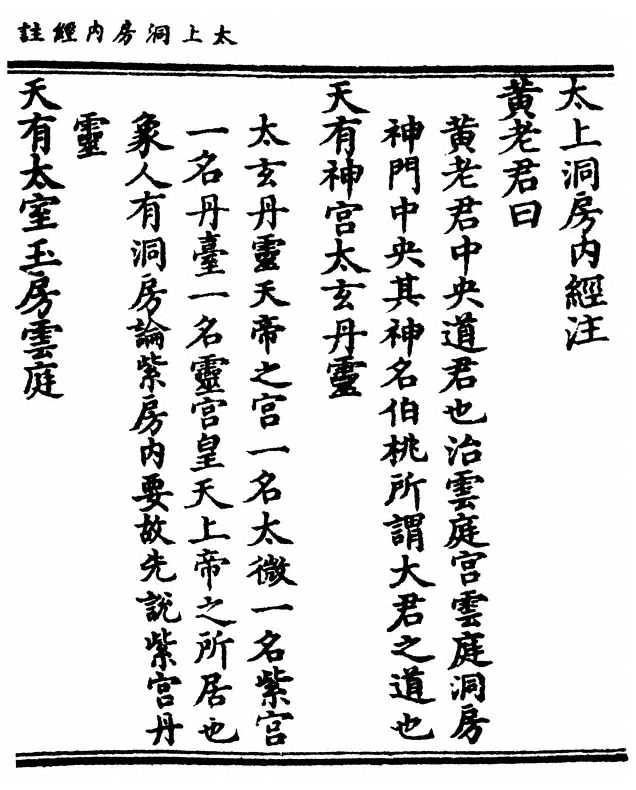 太上洞房內經註
太上洞房內經注
黃老君曰
黃老君中央道君也治雲庭宮雲庭洞房
神門中央其神名伯桃所謂大君之道也
天有神宮太玄丹靈
太玄丹靈天帝之宮一名太微一名紫宮
一名丹臺一名靈宮皇天上帝之所居也
象人有洞房論紫房內要故先說紫宮丹
靈
天有太室玉房雲庭